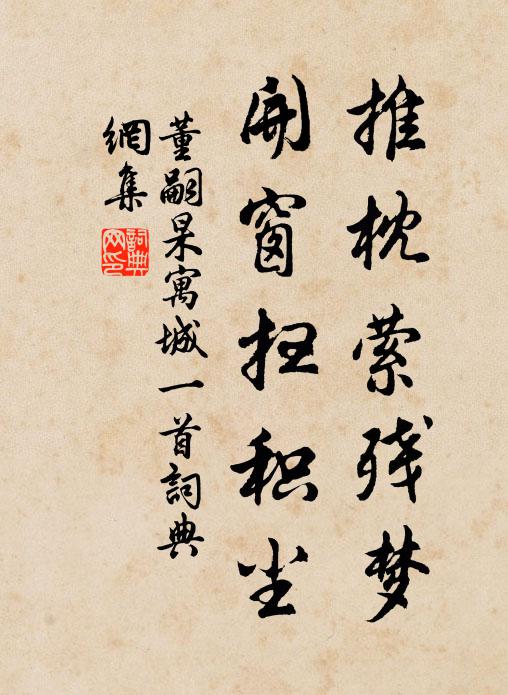 推枕萦残梦
開窗扫积尘
董嗣杲寓城一首詞典
網集
詞典
网印